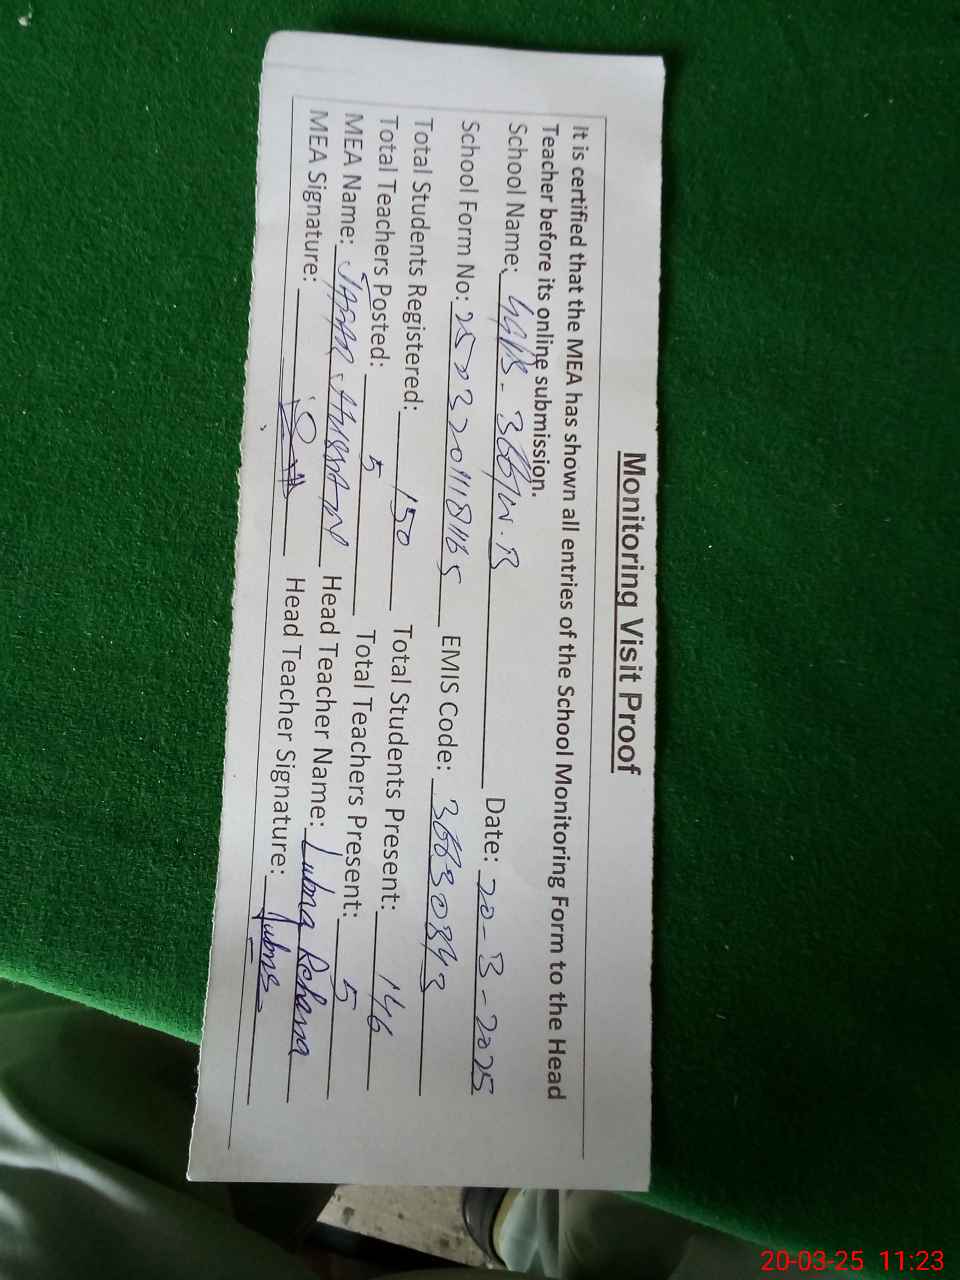 Monitoring Visit Proof
It is certified that the MEA has shown all entries of the School Monitoring Form to the Head
Teacher before its online submission.
School Name: Date: 20-3-2025
School Form No: EMIS Code:
Total Students Registered: 150 Total Students Present: 146
Total Teachers Posted: 5 Total Teachers Present: 5
MEA Name: JAFAR HUSSAIN Head Teacher Name: Lubna Rehana
MEA Signature: Head Teacher Signature: Lubna
20-03-25 11:23